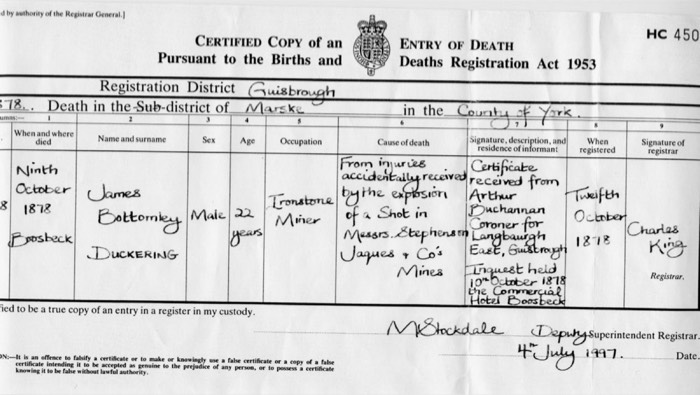 d by authority of the Registrar General.]
HC 450
CERTIFIED COPY of an ENTRY OF DEATH
Pursuant to the Births and Deaths Registration Act 1953
Registration District Guisbrough
1878.. Death in the Sub-district of Marske in the County of York.
1 2 3 4 5 6 7 8 9
When and where died
Name and surname
Sex
Age
Occupation
Cause of death
Signature, description, and residence of informant
When registered
Signature of registrar
8
Ninth
October
1878
Boosbeck
James
Bottomley
DUCKERING
Male
22
years
Ironstone
Miner
From injuries
accidentally received
by the explosion
of a Shot in
Messrs. Stephenson
Jaques + Co's
Mines
Certificate
received from
Arthur
Buchannan
Coroner for
Langbaurgh
East, Guisbrough
Inquest held
10th October 1878
the Commercial
Hotel Boosbeck
Twelfth
October
1878
Charles
King
Registrar.
fied to be a true copy of an entry in a register in my custody.
M Stockdale Deputy Superintendent Registrar.
4th July 1997. Date.
ON:—It is an offence to falsify a certificate or to make or knowingly use a false certificate or a copy of a false
certificate intending it to be accepted as genuine to the prejudice of any person, or to possess a certificate
knowing it to be false without lawful authority.